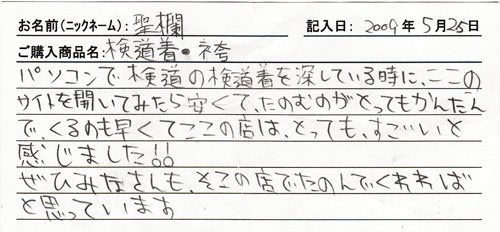 お名前(ニックネーム): 聖欄 記入日: 2009年5月25日
ご購入商品名: 検道着・袴
パソコンで検道の検道着を深している時に、ここの
サイトを開いてみたら安くて、たのむのがとってもかんたん
で、くるのも早くてここの店は、とっても、すごいと
感じました!!
ぜひみなさんも、そこの店でたのんでくれれば
と思っています